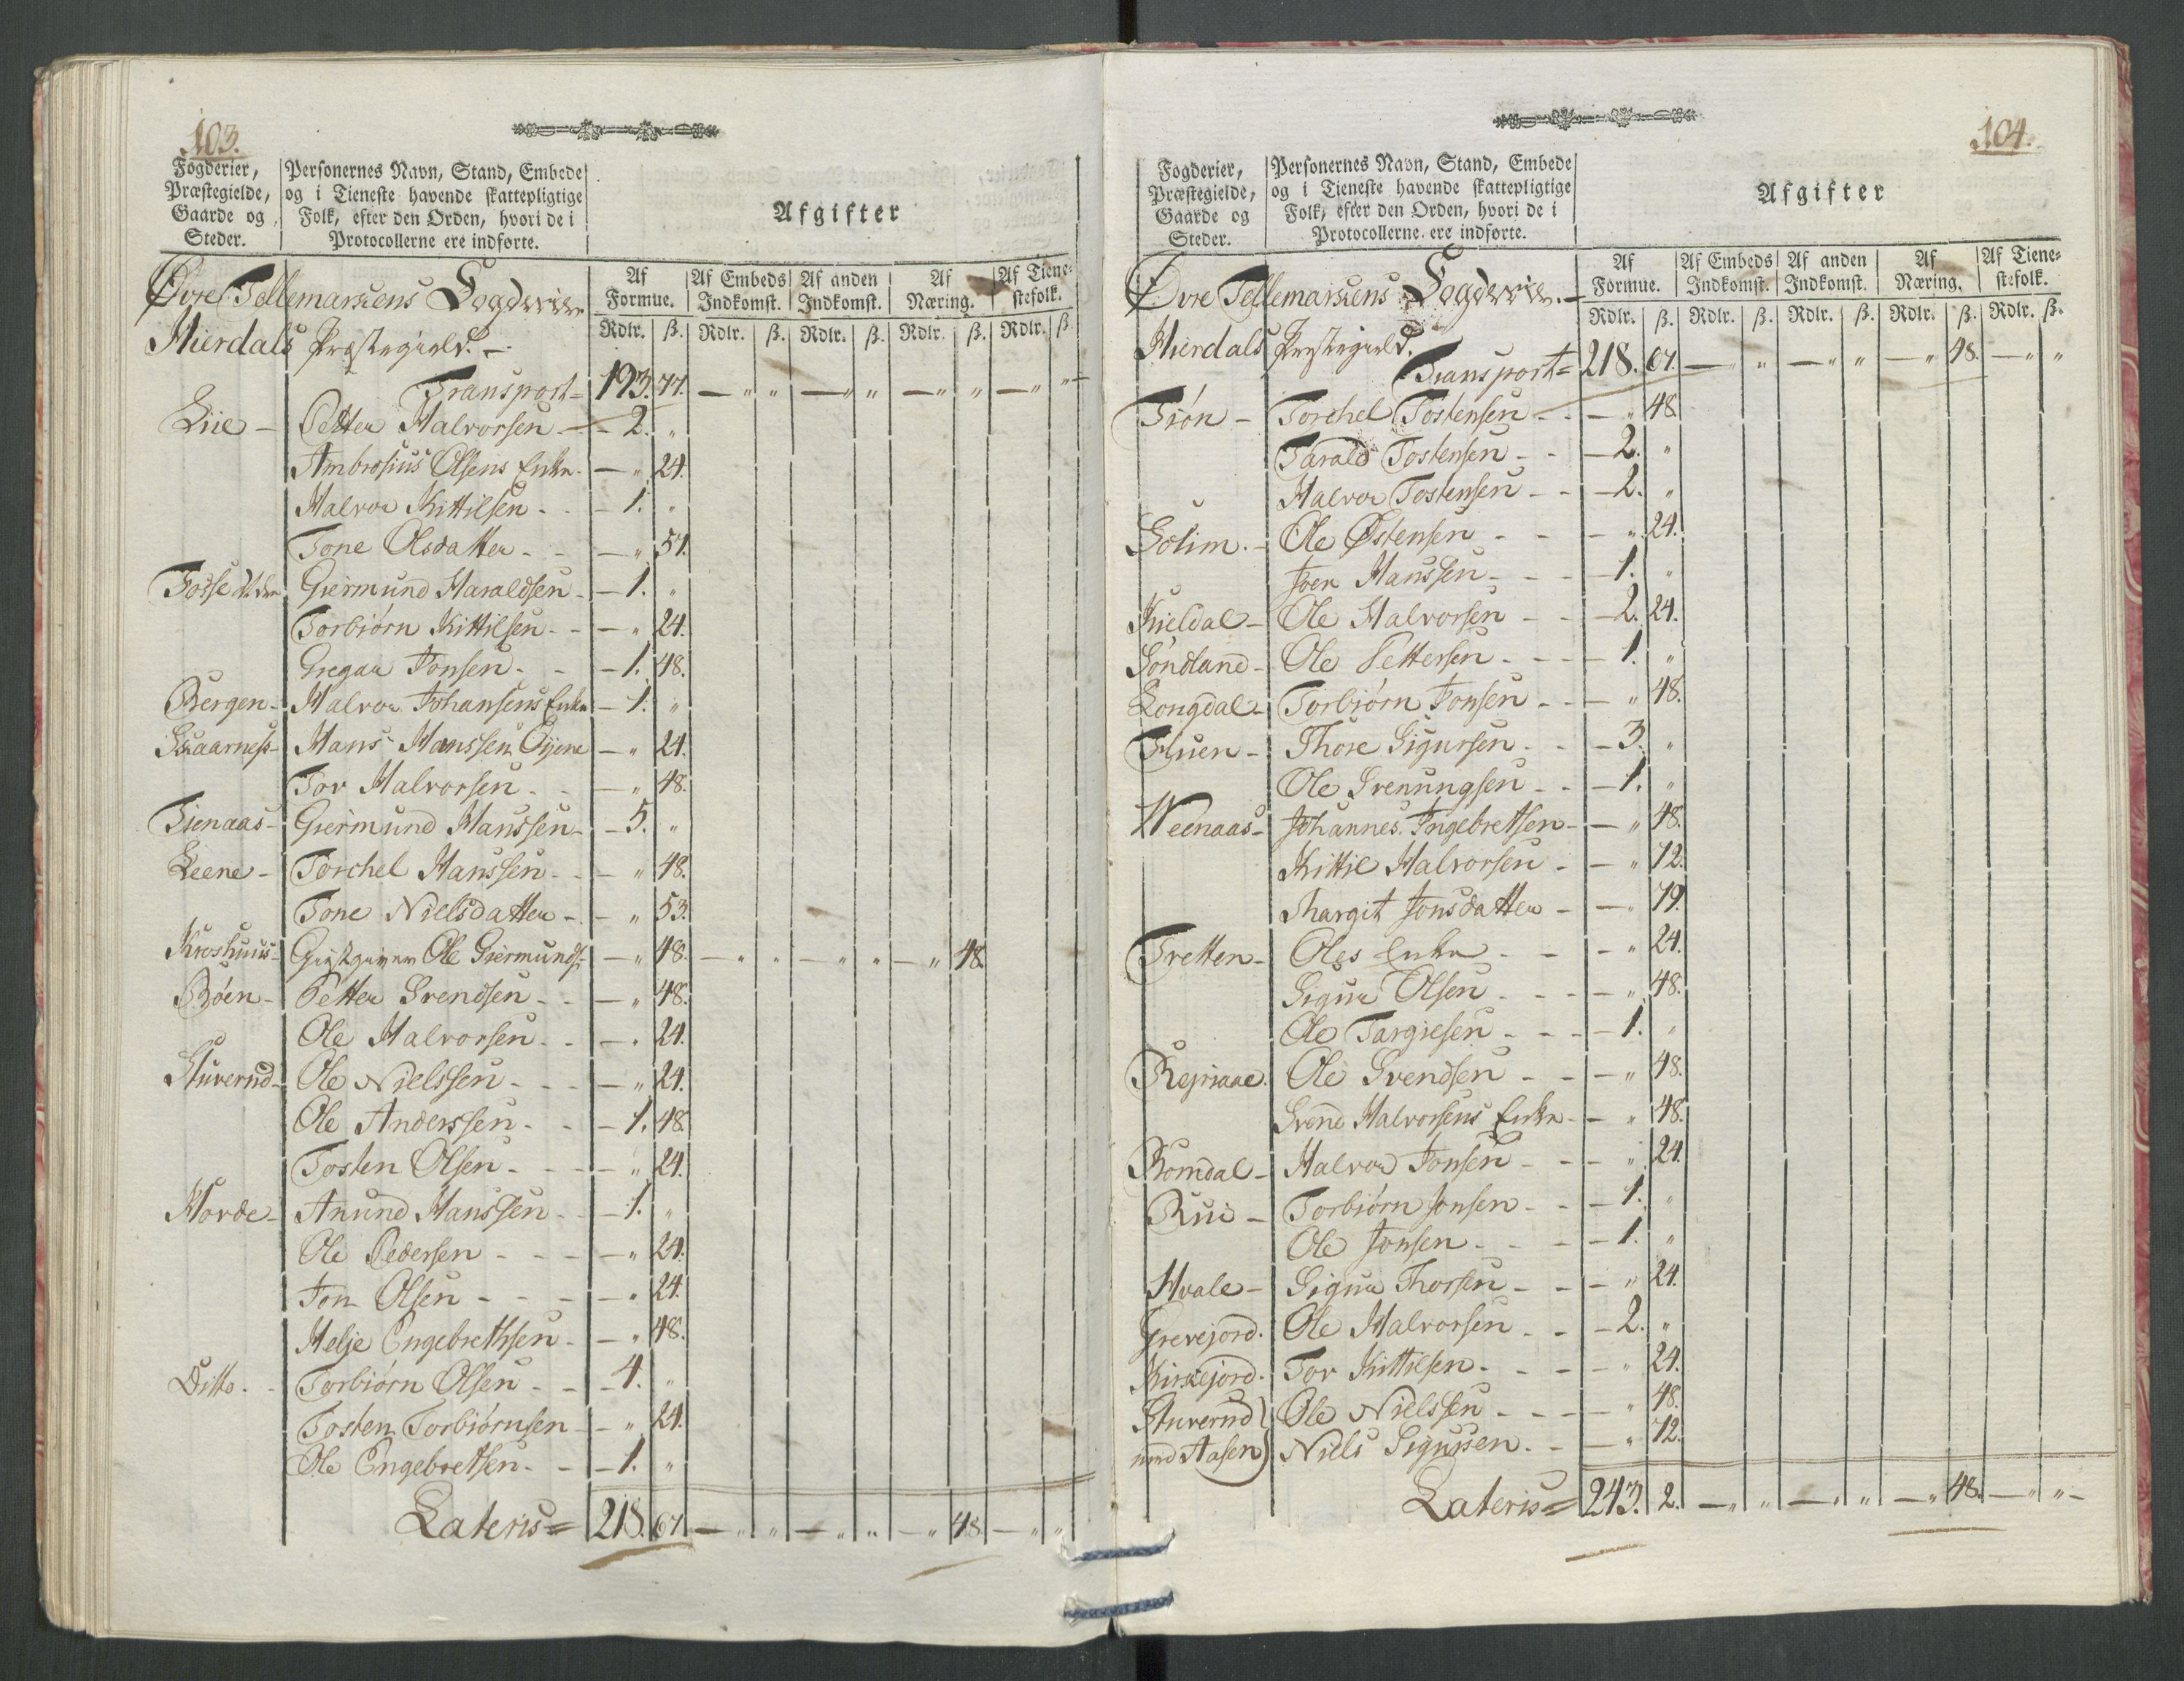 103.
Fogderier, Præstegielde, Gaarde og Steder.
Personernes Navn, Stand, Embede og i Tieneste havende skattepligtige Folk, efter den Orden, hvori de i Protocollerne ere indførte.
Afgifter
Øvre Tellemarkens Fogderie
Hierdals Præstegield.
Af Formue. Af Embeds Indkomst. Af anden Indkomst. Af Næring. Af Tienestefolk.
Rdlr. ß. Rdlr. ß. Rdlr. ß. Rdlr. ß. Rdlr. ß.
Transport = 193. 77. — " " — " " — " " — " "
Liie - Petter Halvorsen - 2. "
Ambrosius Olsens Enke - — " 24.
Halvor Kittilsen - 1. "
Tone Olsdatter - — " 51.
Fosse Giermund Haraldsen - 1. "
Torbiørn Kittilsen - — " 24.
Gregar Jonsen - 1. 48.
Bergen - Halvor Johansens Enke - 1. "
Skaarness - Hans Hanssen Øijene — " 24.
Tor Halvorsen - — " 48.
Tienaas - Giermund Hanssen - 5. "
Leene - Torchel Hanssen - — " 48.
Tone Nielsdatter - — " 53.
Kroshuus - Giestgiver Ole Giermunds: — " 48. — " " — " " — " 48.
Bøen - Petter Svendsen - — " 48.
Ole Halvorsen - — " 24.
Sturerud - Ole Nielssen - — " 24.
Ole Anderssen - 1. 48
Tosten Olsen - — " 24.
Horde - Anund Hanssen - 1. "
Ole Pedersen - — " 24.
Jon Olsen - — " 24.
Helje Engebrethsen - — " 48.
Ditto. - Torbiørn Olsen - 4. "
Tosten Torbiørnsen - — " 24.
Ole Engebretsen - 1. "
Lateris = 218. 67. — " " — " " — " 48. — " "
104.
Fogderier, Præstegielde, Gaarde og Steder.
Personernes Navn, Stand, Embede og i Tieneste havende skattepligtige Folk, efter den Orden, hvori de i Protocollerne ere indførte.
Afgifter
Øvre Tellemarkens Fogderie.
Hierdals Præstegield.
Af Formue. Af Embeds Indkomst. Af anden Indkomst. Af Næring. Af Tienestefolk.
Rdlr. ß. Rdlr. ß. Rdlr. ß. Rdlr. ß. Rdlr. ß.
Transport = 218. 67. — " " — " " — " 48. — " "
Tiøn - Torchel Tostensen - — " 48
Tarald Tostensen - 2. "
Halvor Tostensen - 2. "
Solim. - Ole Østensen - — " 24.
Joen Hanssen - 1. "
Kieldal - Ole Halvorsen - 2. 24.
Søndland - Ole Pettersen - 1. "
Longdal - Torbiørn Jonsen - — " 48.
Thore Sigursen - 3. "
Ole Svenungsen - 1. "
Weenaas - Johannes Ingebretsen - — " 48.
Kittil Halvorsen - — " 72.
Margit Jonsdatter - — " 79.
Tretten - Oles Enke - — " 24.
Sigur Olsen - — " 48.
Ole Targiesen - 1. "
Ole Svendsen - — " 48.
Svend Halvorsens Enke - — " 48.
Romdal - Halvor Jonsen - — " 24.
Rui - Torbiørn Jonsen - 1. "
Ole Jonsen - 1. "
Hvale - Sigur Thorsen - — " 24.
Grevejord. Ole Halvorsen - 2. "
Kirkejord. Tor Kittilsen - — " 24.
Sturerud Ole Nielssen - — " 48.
und Aasen) Niels Sigursen. - — " 72.
Lateris = 243. 2. — " " — " " — " 48. — " "